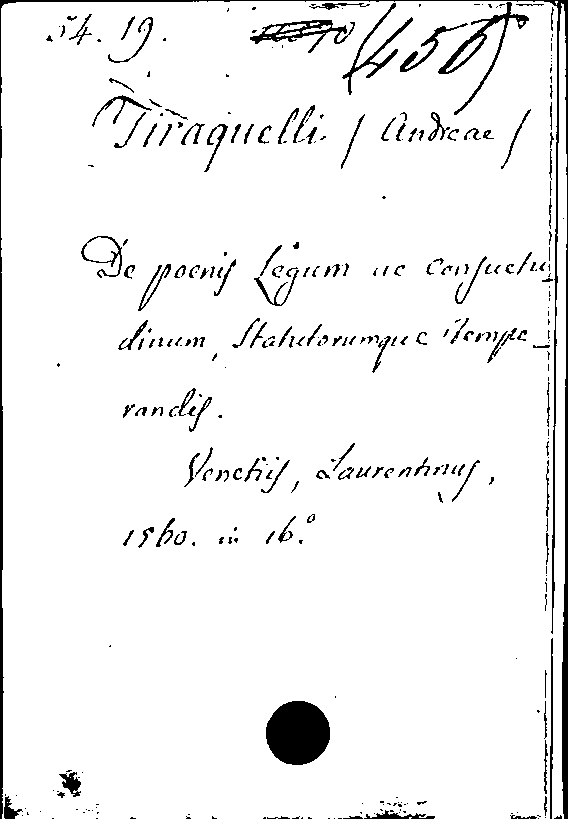 54. 19.
(456)
Tiraquelli / Andreae /
De poenis Legum ac Consuetu-
dinum, Statutorumque tempe-
randis.
Venetiis, Laurentinus,
1560. in 16.°